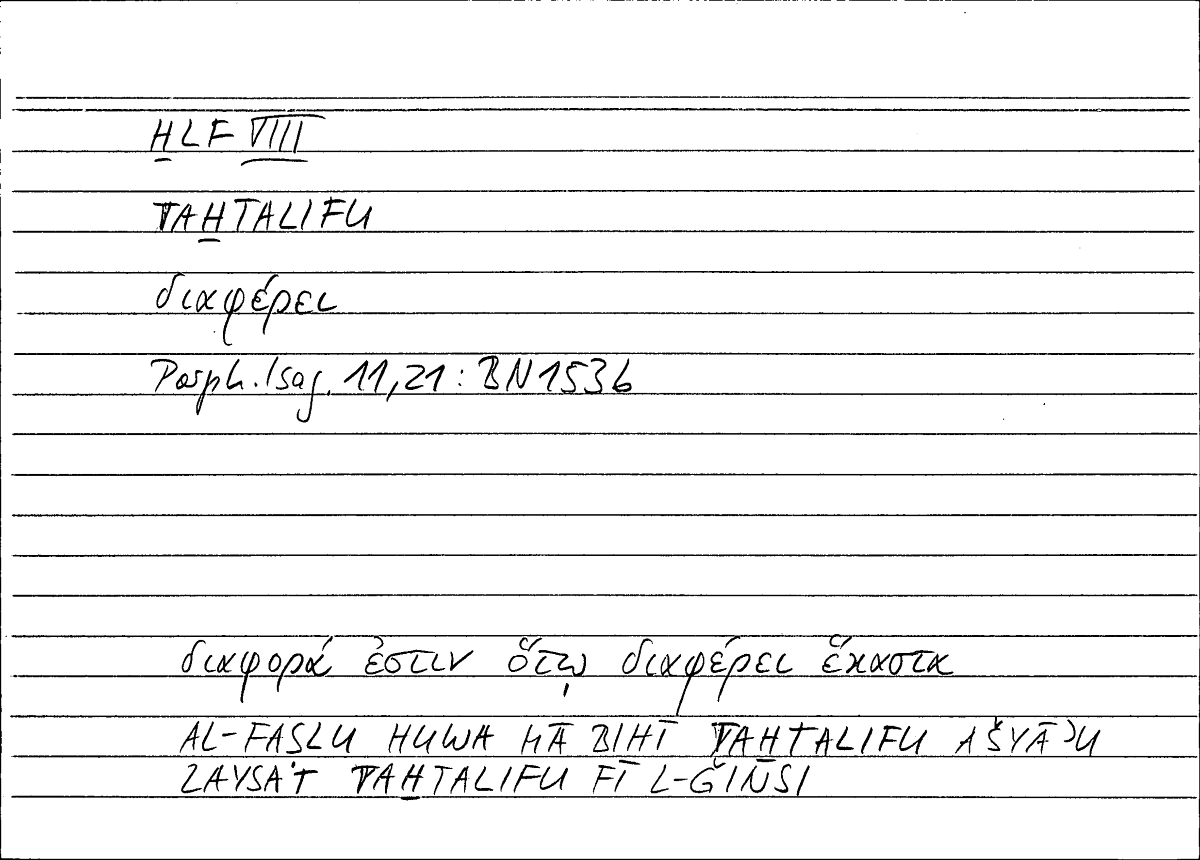 ḪLF VIII
TAḪTALIFU
διαφέρει
Porph. Isag. 11,21 : BN 153b
διαφορά ἐστιν ὅτῳ διαφέρει ἕκαστα
AL-FAṢLU HUWA MĀ BIHĪ TAḪTALIFU AŠYĀʾU
LAYSAT TAḪTALIFU FĪ L-ǦINSI